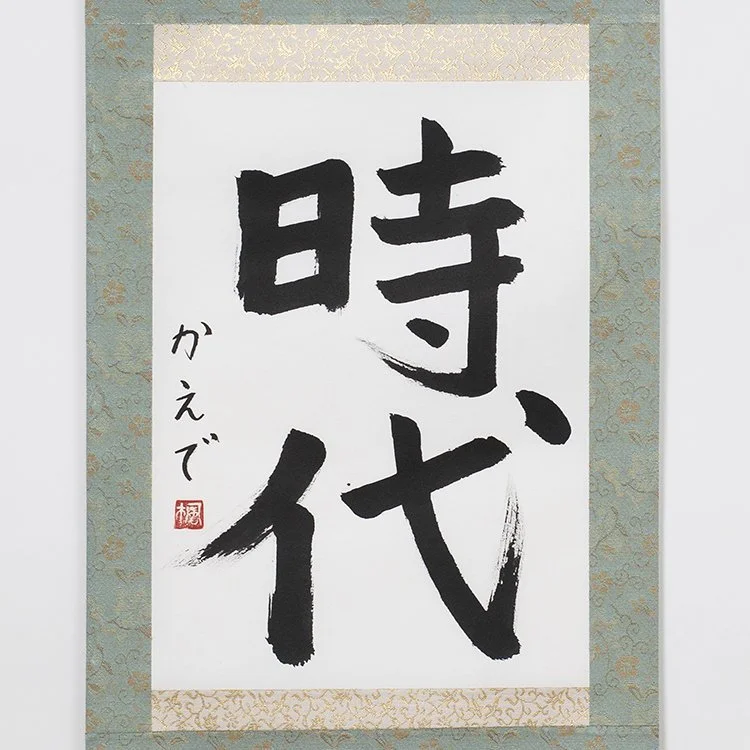 時代
かえで
楓